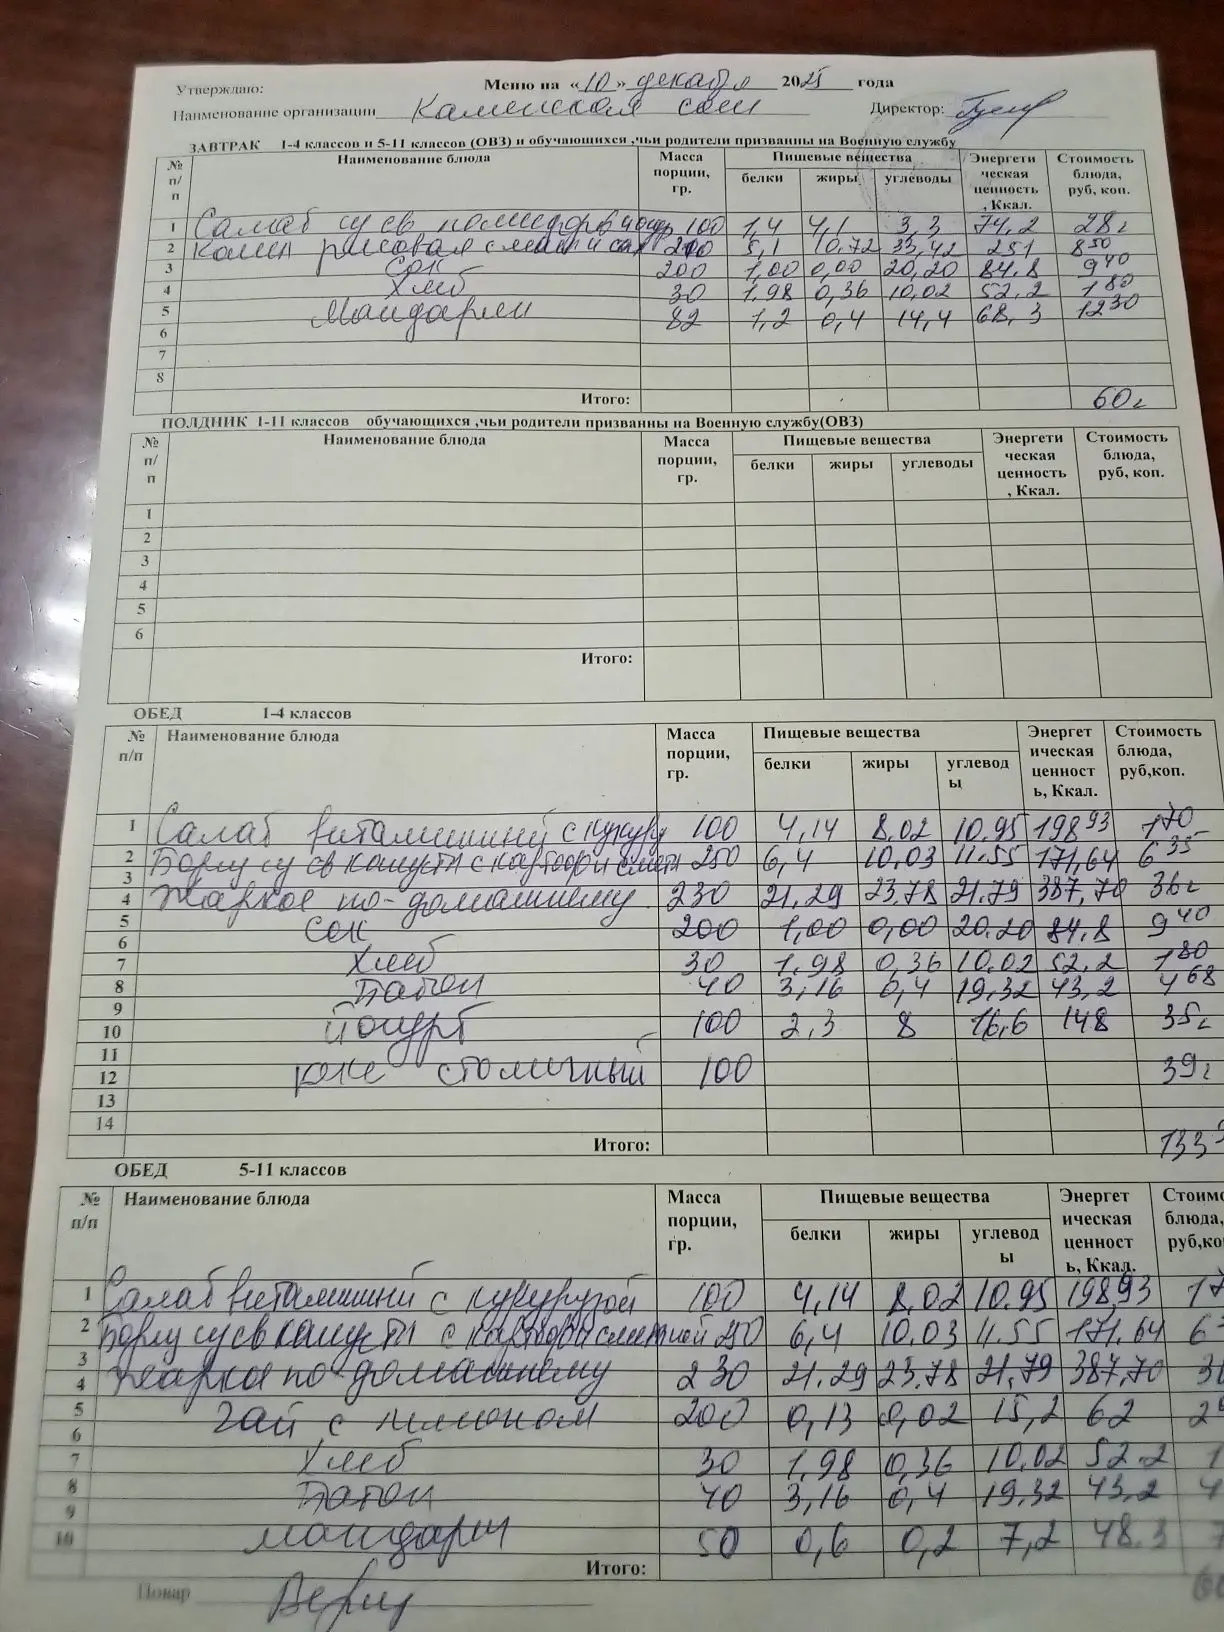 Утверждаю: Меню на «10» декабря 2025 года
Наименование организации Каменская сош Директор:
ЗАВТРАК 1-4 классов и 5-11 классов (ОВЗ) и обучающихся ,чьи родители призванны на Военную службу
№ п/п Наименование блюда Масса порции, гр. Пищевые вещества Энергетическая ценность, Ккал. Стоимость блюда, руб, коп.
белки жиры углеводы
1 Салат из св помидоров 100 1,4 4,1 3,3 74,2 28
2 рисовая с 5,1 10,72 33,42 251 8 50
3 Сок 200 1,00 0,00 20,20 84,8 9 40
4 Хлеб 30 1,98 0,36 10,02 52,2 1 80
5 Мандарин 82 1,2 0,4 14,4 68,3 12 30
6
7
8
Итого: 60
ПОЛДНИК 1-11 классов обучающихся ,чьи родители призванны на Военную службу(ОВЗ)
№ п/п Наименование блюда Масса порции, гр. Пищевые вещества Энергетическая ценность, Ккал. Стоимость блюда, руб, коп.
белки жиры углеводы
1
2
3
4
5
6
Итого:
ОБЕД 1-4 классов
№ п/п Наименование блюда Масса порции, гр. Пищевые вещества Энергетическая ценность, Ккал. Стоимость блюда, руб,коп.
белки жиры углеводы
1 Салат витаминный с кукуру 100 4,14 8,02 10,95 198 93
2 Борщ из св капусты с картоф и смет 250 6,4 10,03 11.55 171,64 6 35
3
4 Жаркое по-домашнему 230 21,29 23,78 21,79 387,70 36
5 Сок 200 1,00 0,00 20.20 84,8 9 40
6
7 Хлеб 30 1,98 0,36 10,02 52,2 1 80
8 Батон 40 3,16 0,4 19,32 43,2 4 68
9
10 Йогурт 100 2,3 8 16,6 148 35
11
12 столичный 100 39
13
14
Итого: 133
ОБЕД 5-11 классов
№ п/п Наименование блюда Масса порции, гр. Пищевые вещества Энергетическая ценность, Ккал.
белки жиры углеводы
1 Салат витаминный с кукурузой 100 4,14 8,02 10,95 198,93
2 Борщ из св капусты с картоф сметаной 250 6,4 10,03 11.55 171,64
3
4 Жаркое по-домашнему 230 21.29 23,78 21,79 387,70
5 Чай с лимоном 200 0,13 0,02 15,2 62
6
7 Хлеб 30 1,98 0,36 10,02 52.2
8 Батон 40 3,16 0,4 19,32 43,2
9
10 Мандарин 50 0,6 0,2 7,2 48.3
Итого:
Повар